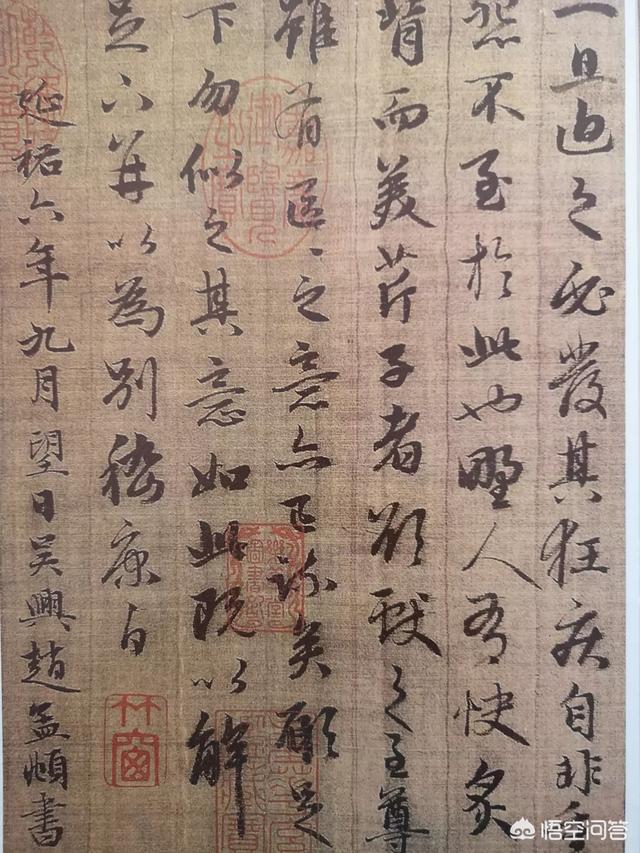 一旦迫之必發其狂疾自非重
怨不至於此也野人有快炙
背而美芹子者欲獻之至尊
雖有區〻之意亦已疎矣願足
下勿似之其意如此既以解
足下并以為別嵇康白
延祐六年九月望日吳興趙孟頫書
竹窗
悟空问答